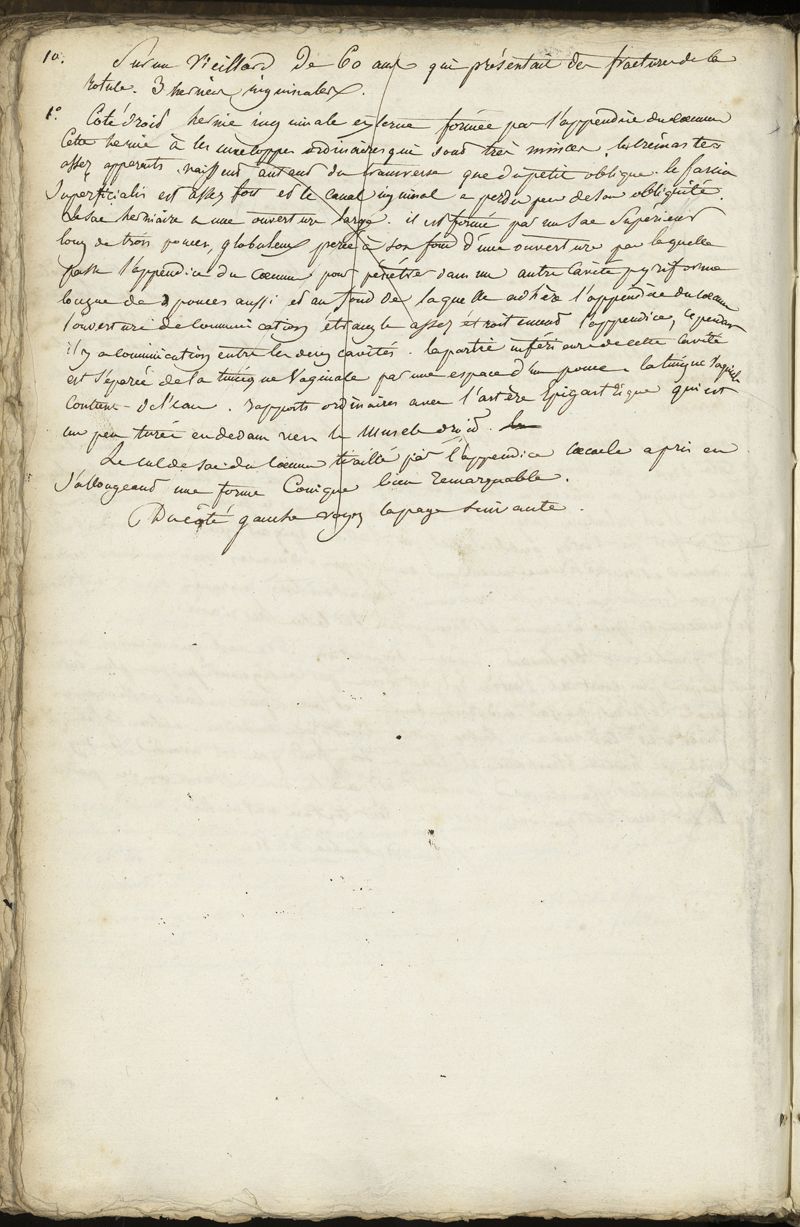 10. Sur un Vieillard De 60 ans qui présentait des fractures de la
rotule. 3 hernies inguinales.
1º Coté droit hernie inguinale externe formée par l'appendice du coecum
Cette hernie à les enveloppes ordinaires qui sont très minces. les crémasters
assez apparents naissent autant du transverse que du petit oblique. le fascia
Superficialis est assez fort et le canal inguinal a perdu peu de son obliquité.
Le sac herniaire a une ouverture large. il est formé par un sac Supérieur
long de trois pouces, globuleux percé à son fond d'une ouverture par laquelle
passe l'appendice du Coecum pour pénétrer dans une autre cavité pyriforme
longue de 3 pouces aussi et au fond de laquelle adhère l'appendice du coecum
l'ouverture de Communication étrangle assez étroitement l'appendice, cependant
il y a communication entre les deux cavités. la partie inférieure de cette cavité
est séparée de la tunique Vaginale par une espace d'un pouce. la tunique Vaginale
contient de l'eau. rapports ordinaires avec l'artère Epigastrique qui est
un peu tirée en dedans vers le Muscle droit.
Le cul de sac du Coecum tiraillé par l'appendice coecale a pris en
s'allongeant une forme Conique bien remarquable.
Du côté gauche voyez la page suivante.